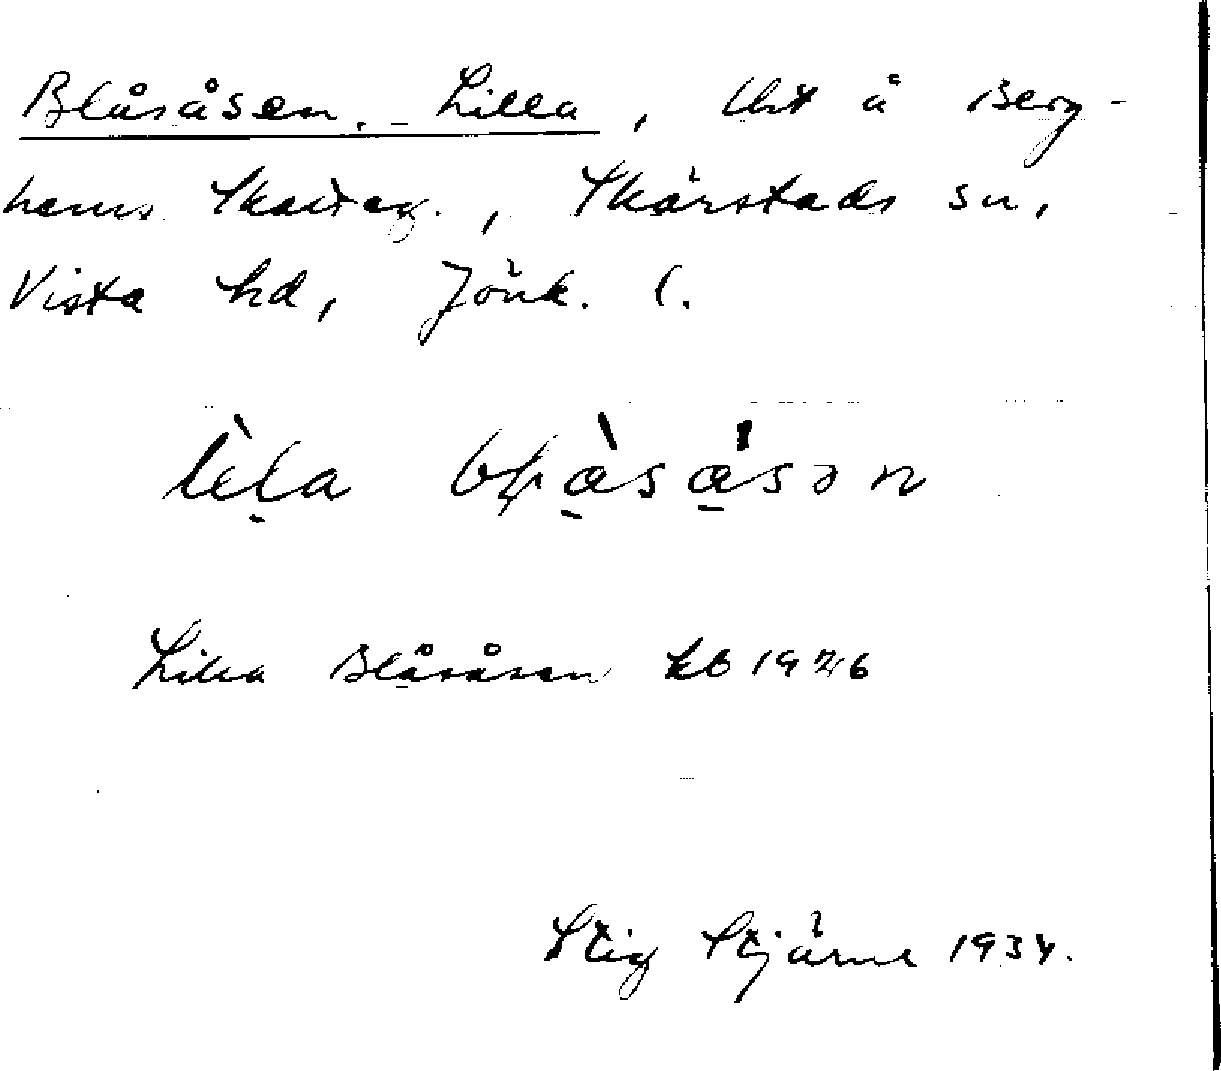 Blåsåsen, Lilla, lht å Berg-
hems skatteg., Skärstads sn,
Vista hd, Jönk. l.
Lilla Blåsåsen kb 1926
Stig Stjärne 1934.